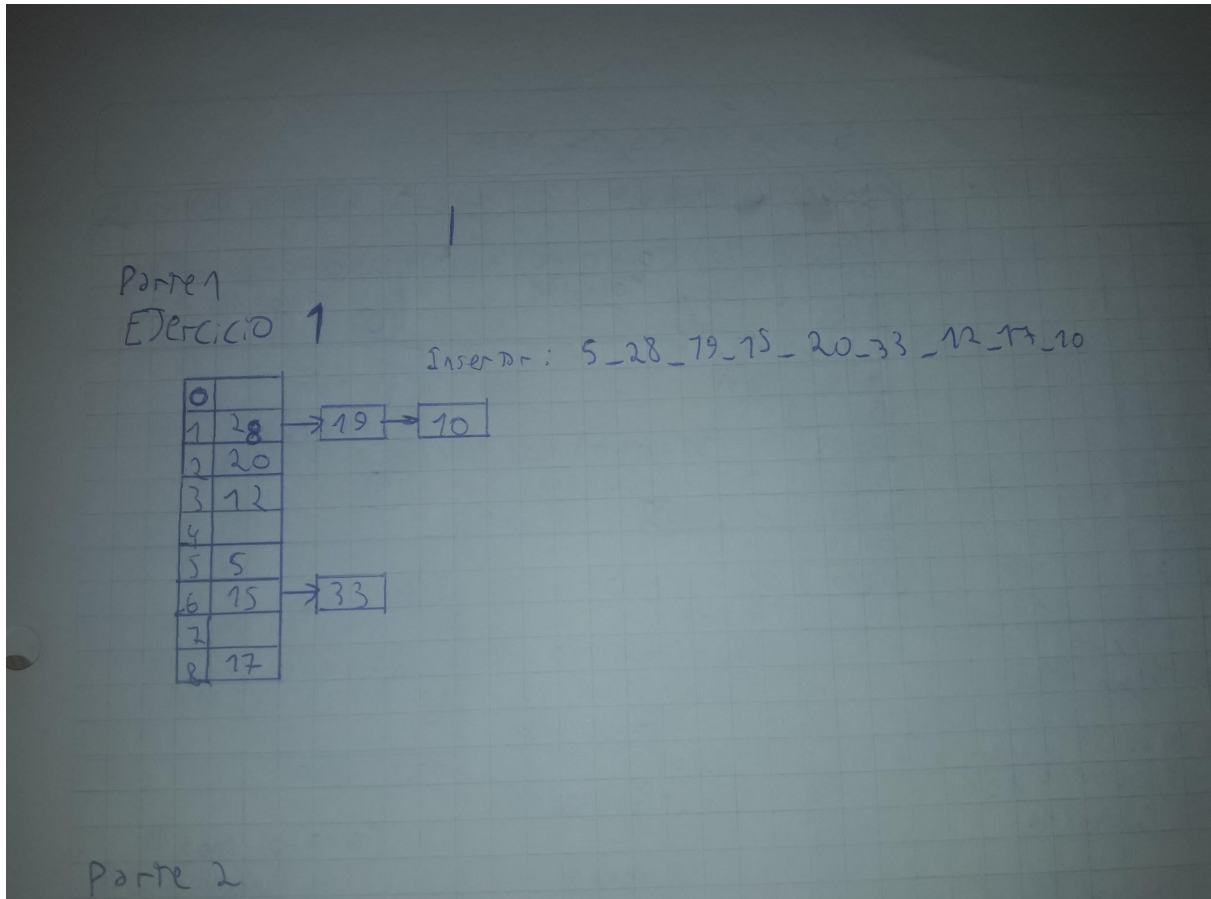 Parte 1
Ejercicio 1
Insertar: 5_28_19_15_20_33_12_17_10
0
1 28 → 19 → 10
2 20
3 12
4
5 5
6 15 → 33
7
8 17
Parte 2